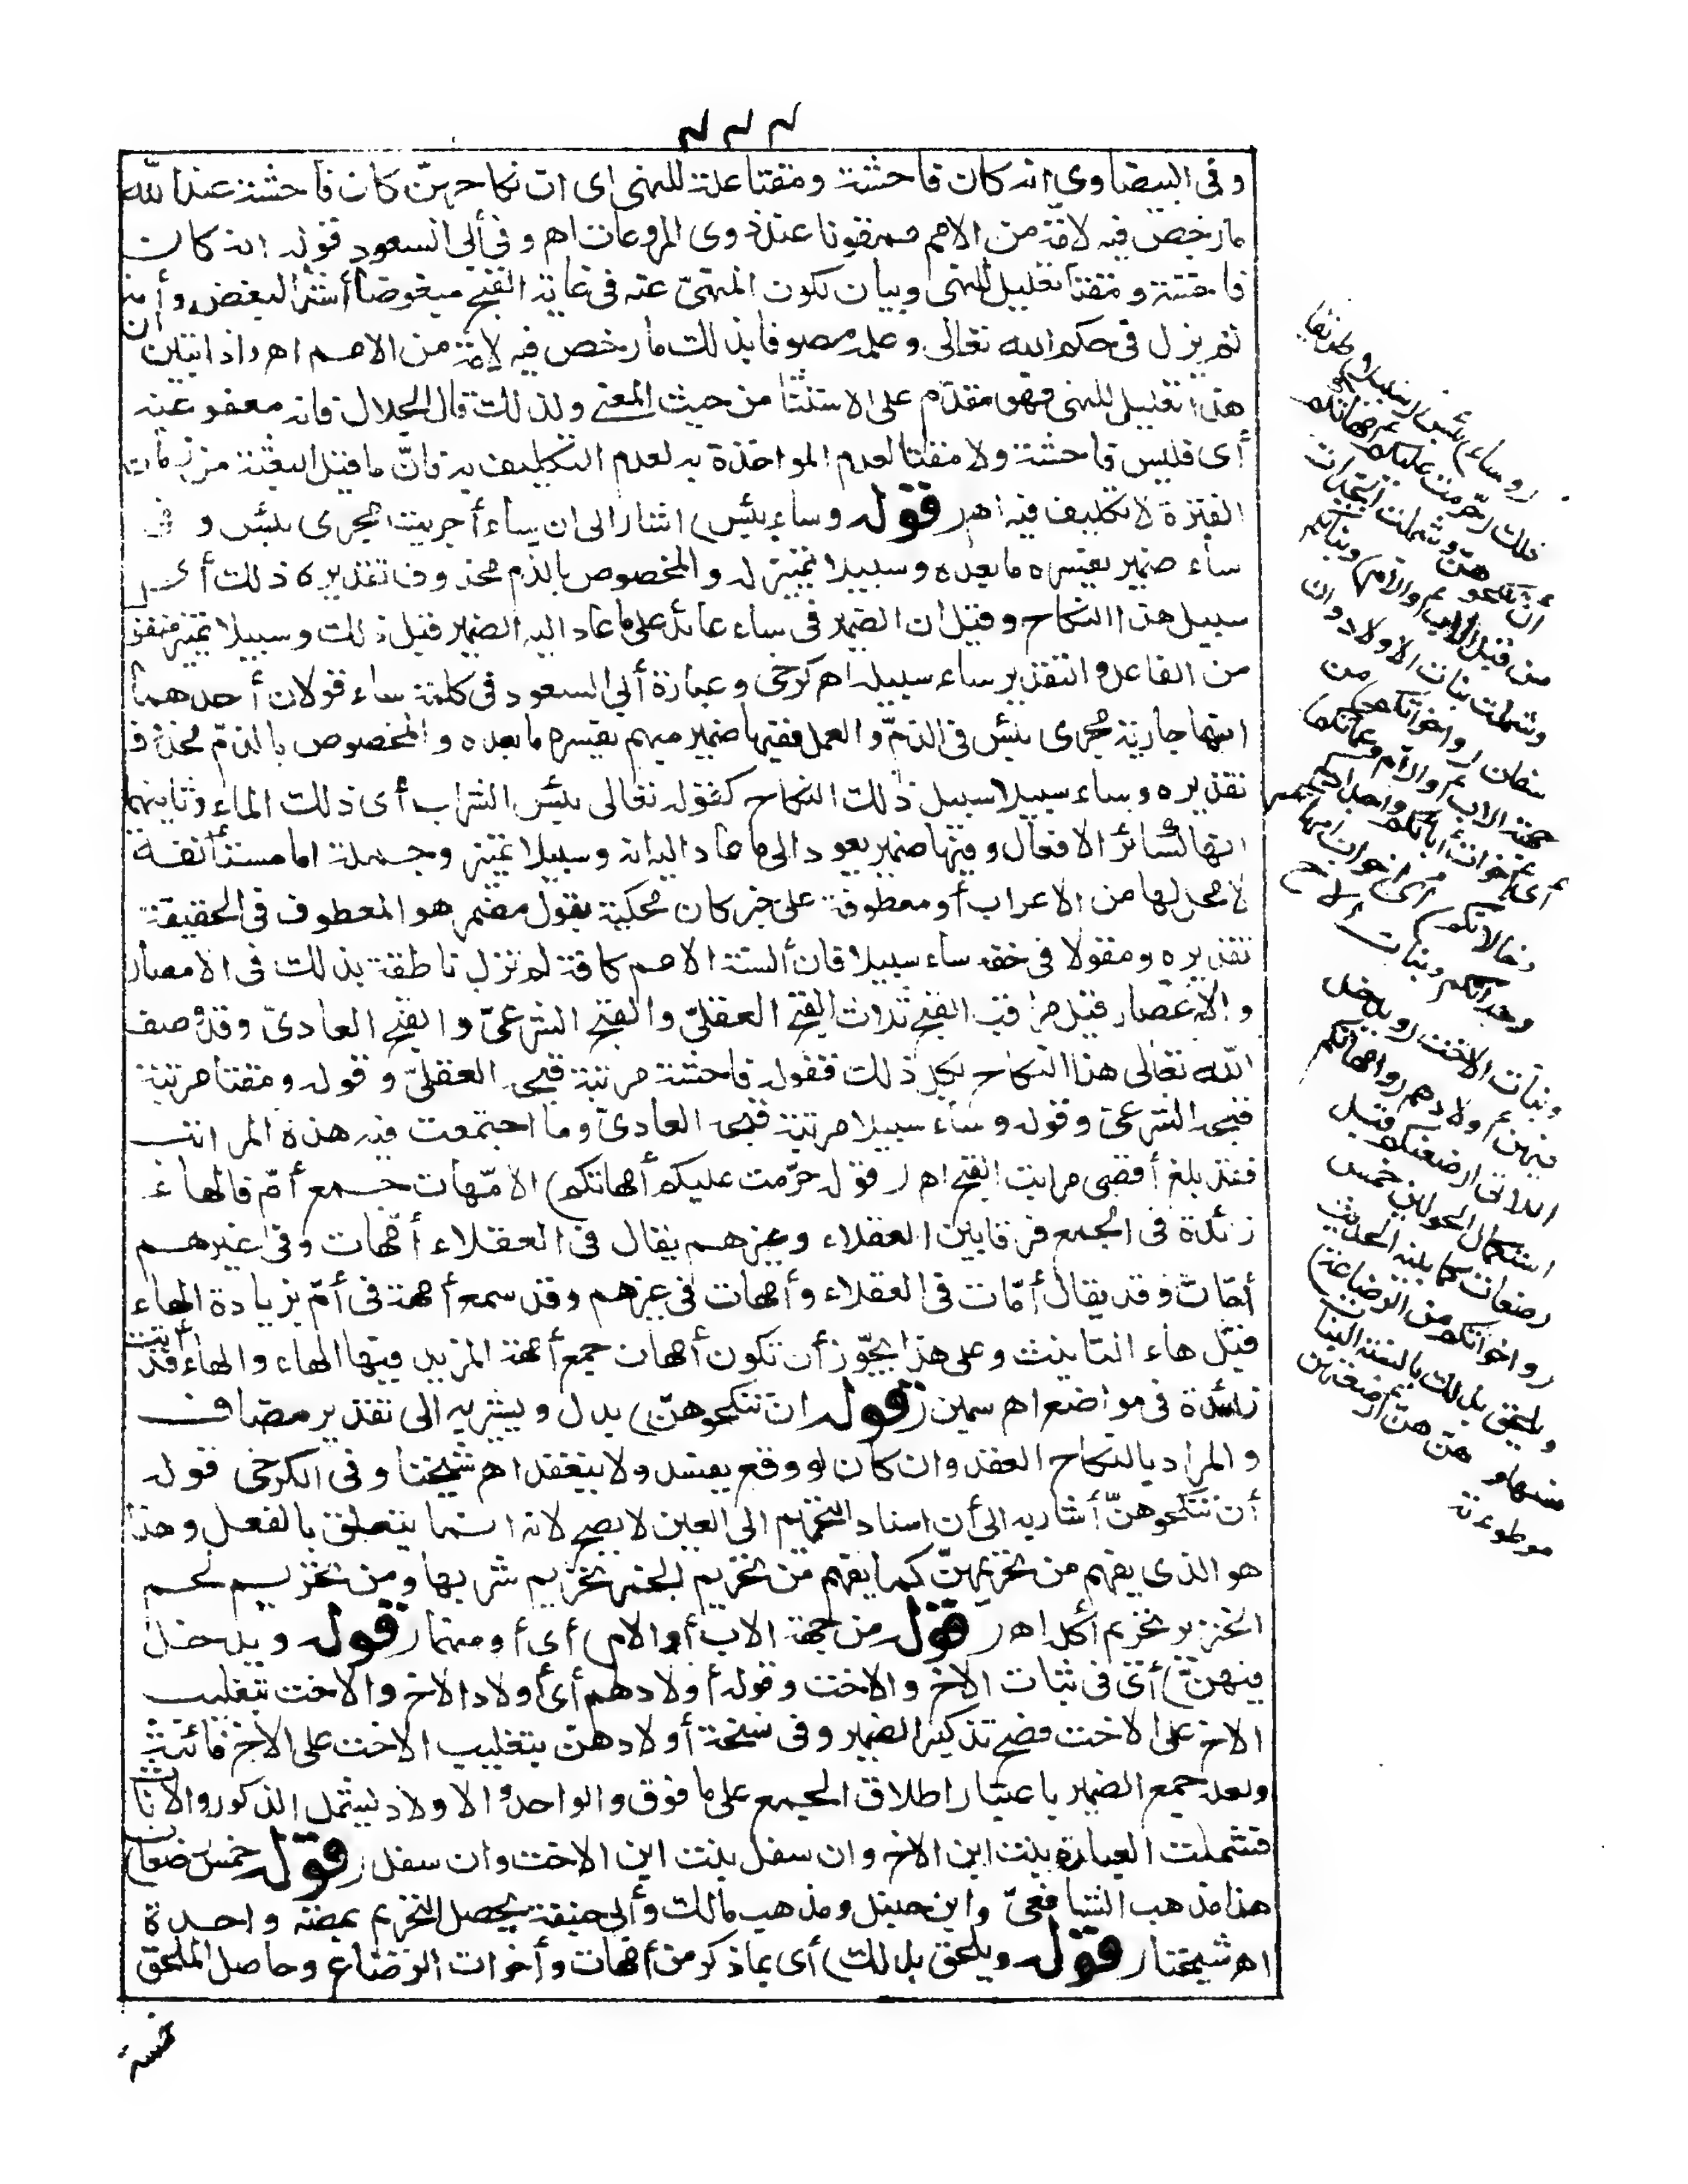 وفى البيضاوى انه كان فاحشة ومقتا علة للنهى اى ان نكاحهنّ كان فاحشة عند اللّه
ما رخص فيه لامّة من الامم ممقوتا عند ذوى المروءات اهـ وفى أبى السعود قوله انه كان
فاحشة ومقتا تعليل للنهى وبيان لكون المنهىّ عنه فى غاية القبح مبغوضا أشدّ البغض وأنه
لم يزل فى حكم الله تعالى وعلمه موصوفا بذلك ما رخص فيه لامّة من الامم اهـ واذا تبين أن
هذا تعليل للنهى فهو مقدّم على الاستثنا من حيث المعنى ولذلك قال الجلال فانه معفو عنه
أى فليس فاحشة ولا مقتا لعدم المواخذة به لعدم التكليف به فانّ ما قبل البعثة من زمان
الفترة لا تكليف فيه اهـ (قوله وساء بئس) اشار الى ان ساء أجريت مجرى بئس و فى
ساء ضمير يفسره ما بعده وسبيلا تمييز له والمخصوص بالذم محذوف تقديره ذلك أى
سبيل هذا النكاح وقيل ان الضمير فى ساء عائد على ما عاد اليه الضمير قبل ذلك وسبيلا تمييز منقول
من الفاعل والتقدير ساء سبيله اهـ كرخى وعبارة أبى السعود فى كلمة ساء قولان أحدهما
انها جارية مجرى بئس فى الذمّ والعمل ففيها ضمير مبهم يفسره ما بعده والمخصوص بالذمّ محذوف
تقديره وساء سبيلا سبيل ذلك النكاح كقوله تعالى بئس الشراب أى ذلك الماء وثانيهما
انها كسائر الافعال وفيها ضمير يعود الى ما عاد اليه انه وسبيلا تمييز وجملة اما مستأنفة
لا محل لها من الاعراب أو معطوفة على خبر كان محكية بقول مضمر هو المعطوف فى الحقيقة
تقديره ومقولا فى حقه ساء سبيلا فان ألسنة الامم كافة لم تزل ناطقة بذلك فى الامصار
والاعصار قيل مراتب القبح ثلاث القبح العقلىّ والقبح الشرعىّ والقبح العادىّ وقد وصف
اللّه تعالى هذا النكاح بكل ذلك فقوله فاحشة مرتبة قبحه العقلىّ وقوله ومقتا مرتبة
قبحه الشرعىّ وقوله وساء سبيلا مرتبة قبحه العادىّ وما اجتمعت فيه هذه المراتب
فقد بلغ أقصى مراتب القبح اهـ (قوله حرّمت عليكم أمهاتكم) الامّهات جمع أمّ فالهاء
زائدة فى الجمع فرقا بين العقلاء وغيرهم يقال فى العقلاء أمّهات وفى غيرهم
أمّات وقد يقال أمّات فى العقلاء وأمهات فى غيرهم وقد سمع أمهة فى أمّ بزيادة الهاء
قبل هاء التانيث وعلى هذا يجوّز أن تكون أمهات جمع أمهة المزيد فيها الهاء والهاء قد أتت
زائدة فى مواضع اهـ سمين (قوله ان تنكحوهنّ) بدل ويشير به الى تقدير مضاف
والمراد بالنكاح العقد وان كان لو وقع يفسد ولا ينعقد اهـ شيخنا وفى الكرخى قوله
أن تنكحوهنّ أشار به الى أن اسناد التحريم الى العين لا يصح لانه انما يتعلق بالفعل وهذا
هو الذى يفهم من تحريمهنّ كما يفهم من تحريم الخمر تحريم شربها ومن تحريم لحم
الخنزير تحريم أكله اهـ (قوله من جهة الاب أو الام) أى أو منهما (قوله ويدخل
فيهنّ) أى فى بنات الاخ والاخت وقوله أولادهم أى أولاد الاخ والاخت بتغليب
الاخ على الاخت فصح تذكير الضمير وفى نسخة أولادهنّ بتغليب الاخت على الاخ فأنث
ولعله جمع الضمير باعتبار اطلاق الجمع على ما فوق الواحد والاولاد يشمل الذكور والاناث
فشملت العبارة بنت ابن الاخ وان سفل بنت ابن الاخت وان سفل (قوله خمس رضعات)
هذا مذهب الشافعىّ وابن حنبل ومذهب مالك وأبى حنيفة يحصل التحريم بمصّة واحدة
اهـ شيخنا (قوله ويلحق بذلك) أى بما ذكر من أمّهات وأخوات الرّضاع وحاصل الملحق
خمسة
(وساء) بئس (سبيلا) طريقا
ذلك (حرّمت عليكم أمهاتكم)
ان تنكحوهنّ وشملت الجدات
من قبل الاب او الام (وبناتكم)
وشملت بنات الاولاد وان
سفلن (واخواتكم) من
جهة الاب او الام (وعماتكم)
أى اخوات أبائكم واجدادكم
(وخالاتكم) أى اخوات امهاتكم
وجداتكم (وبنات الاخ
وبنات الاخت) ويدخل
فيهن أولادهم (وامهاتكم
اللاتى ارضعنكم) قبل
استكمال الحولين خمس
رضعات كما بينه الحديث
(واخواتكم من الرضاعة)
ويلحق بذلك بالسنة البنات
منها وهنّ من أرضعتهن
موطوءته